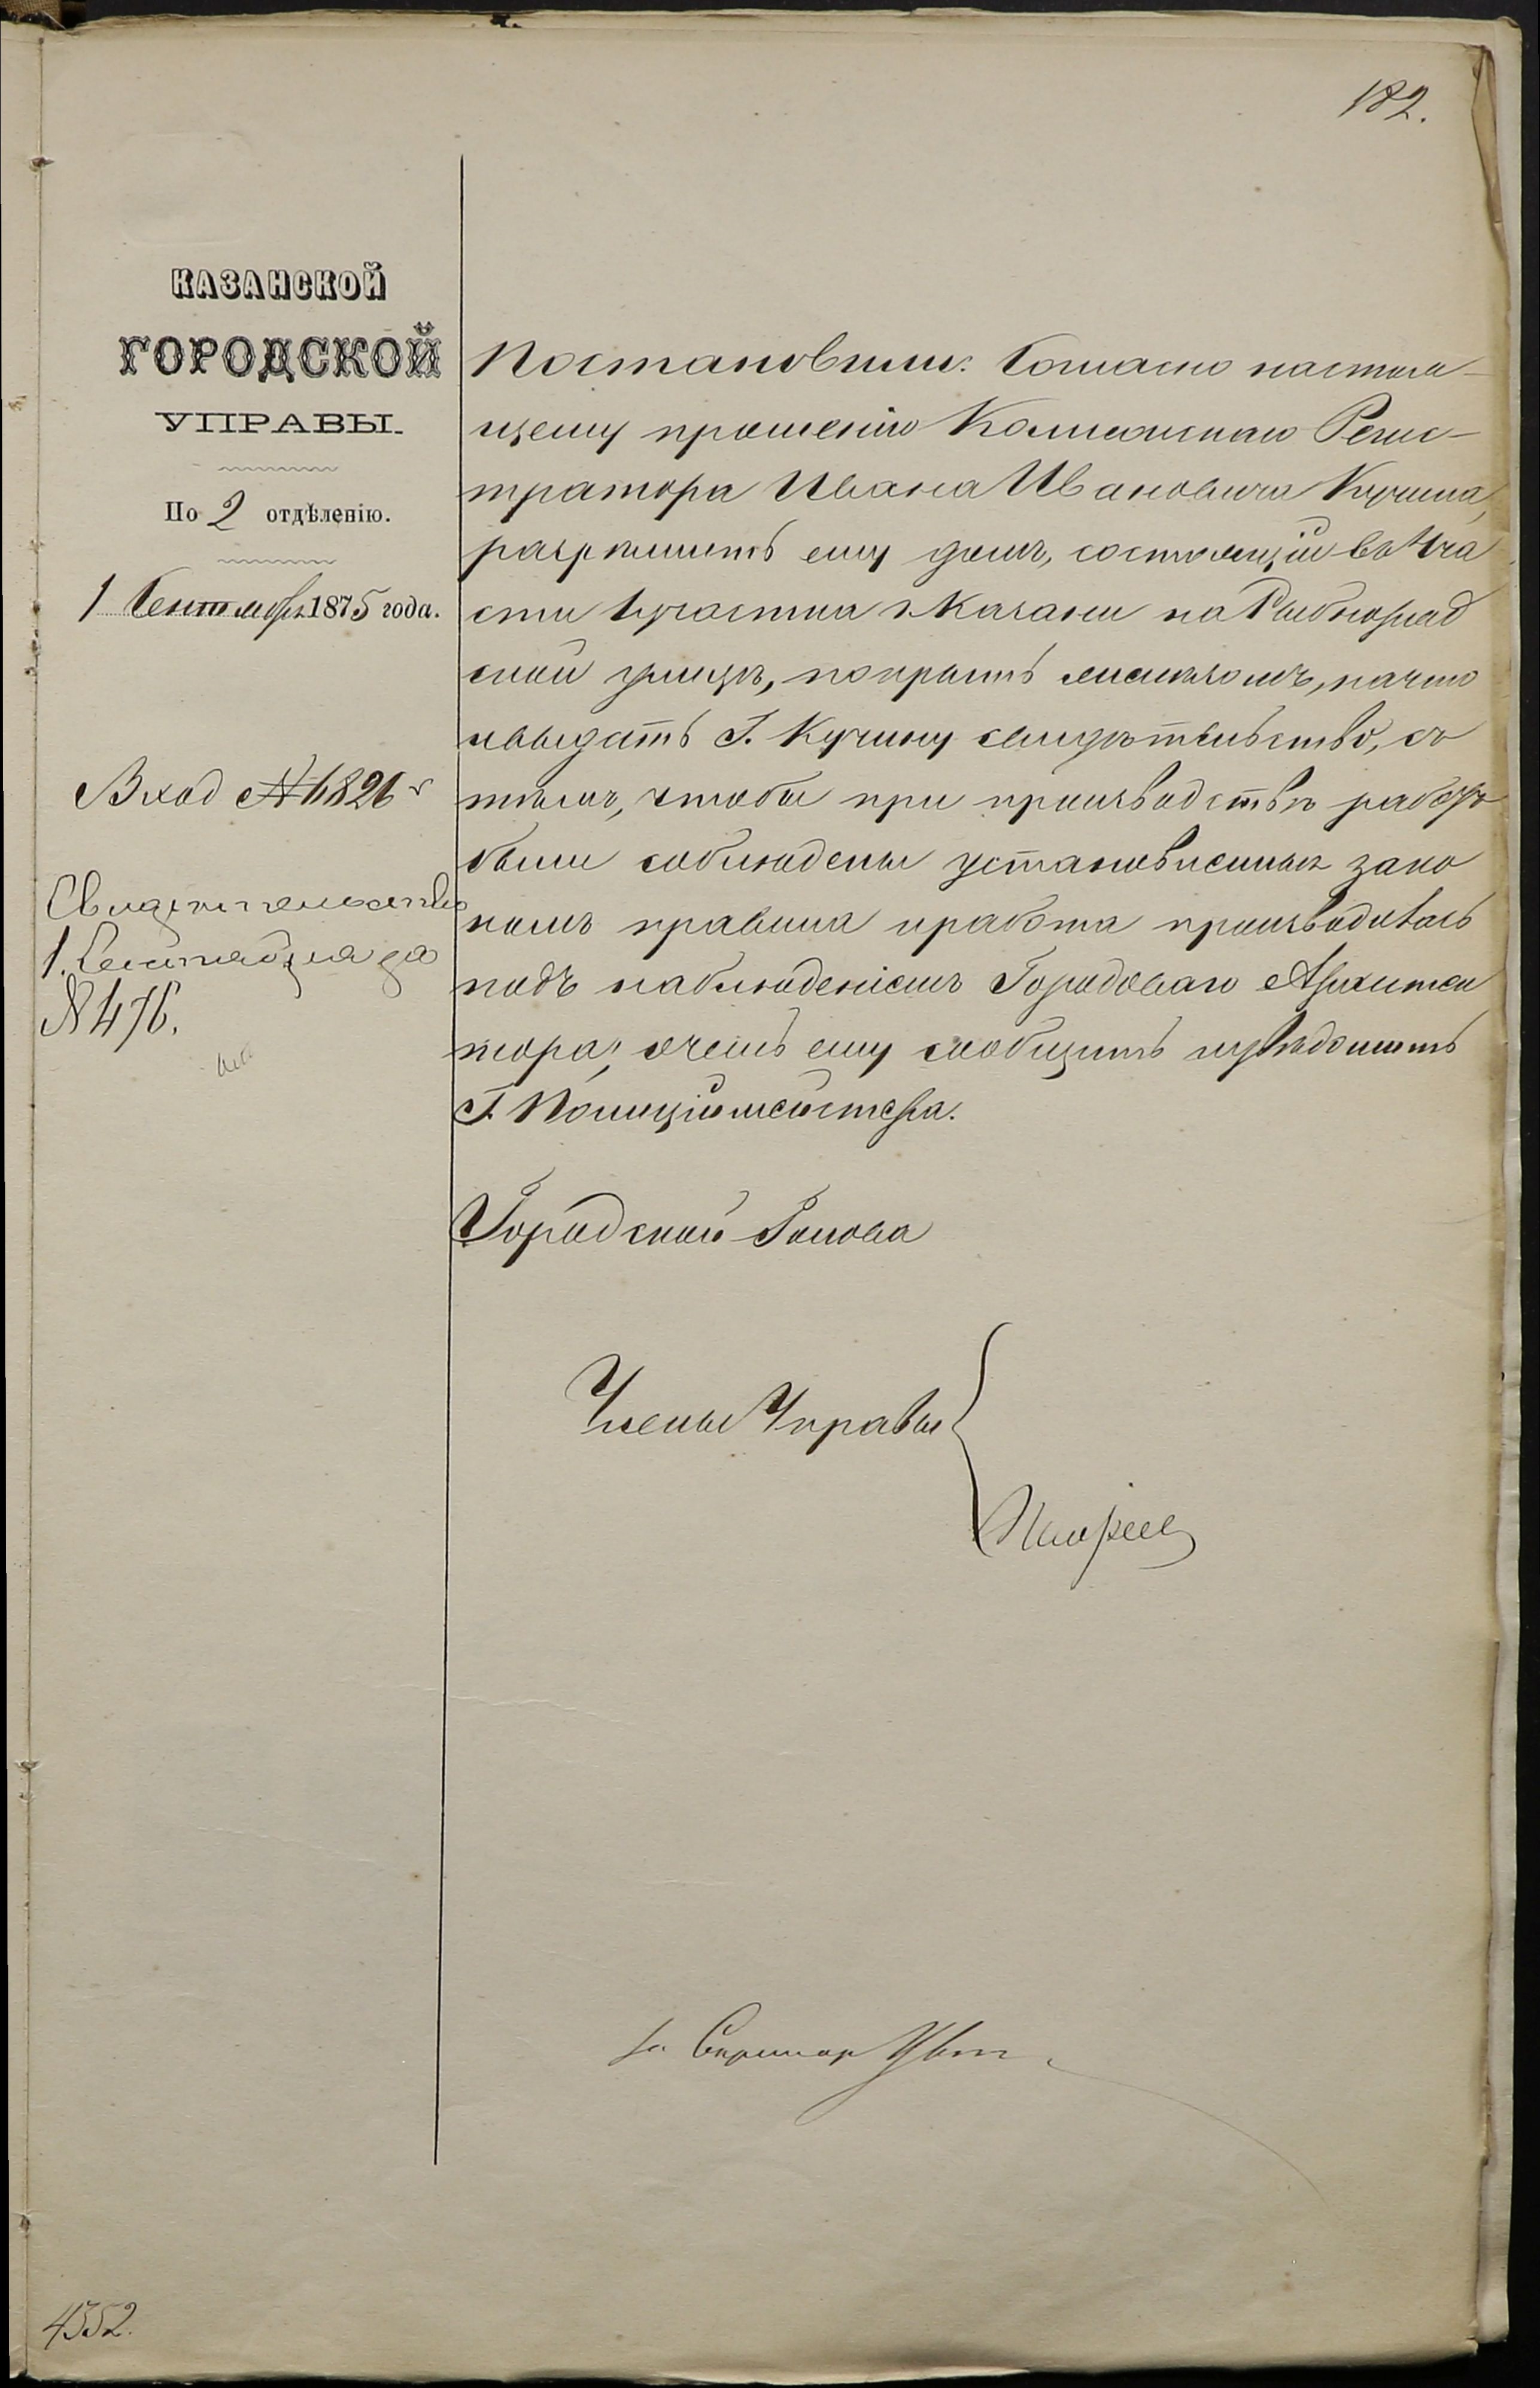 182.
КАЗАНСКОЙ
ГОРОДСКОЙ
УПРАВЫ.
По 2 отдѣленію.
1 Сентября 1875 года.
Вход № 6826
Свидетельство
1. Сентября за
№ 476.
Постановили: Согласно настоя-
щему прошенію Коллежскаго Регис-
тратора Ивана Ивановича Кучина,
разрѣшить ему домъ, состоящій въ 4 ча
сти 1 участка г. Казани на Рыбноряд
ской улицѣ, покрыть желѣзомъ, на что
и выдать Г. Кучину свидѣтельство, съ
тѣмъ, чтобы при производствѣ работъ
были соблюдены установленныя зако
номъ правила и работа производилась
подъ наблюденіемъ Городоваго Архитек
тора; о чемъ ему сообщить и увѣдомить
Г. Полиціймейстера.
Городской Голова
Члены Управы
За Секретар
4352.